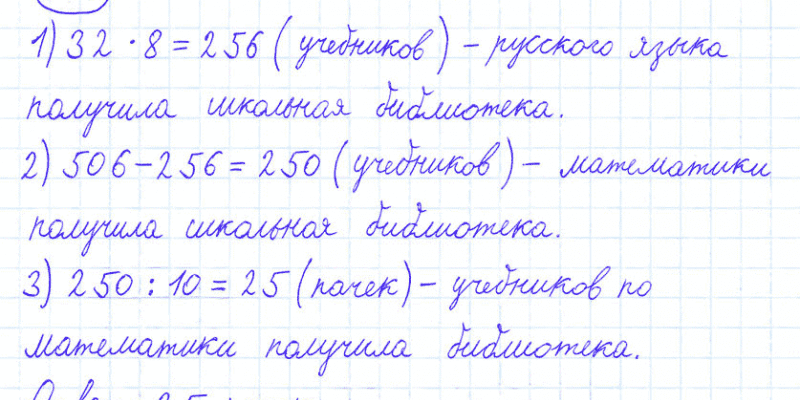 1) 32 · 8 = 256 (учебников) – русского языка
получила школьная библиотека.
2) 506 – 256 = 250 (учебников) – математики
получила школьная библиотека.
3) 250 : 10 = 25 (пачек) – учебников по
математики получила библиотека.